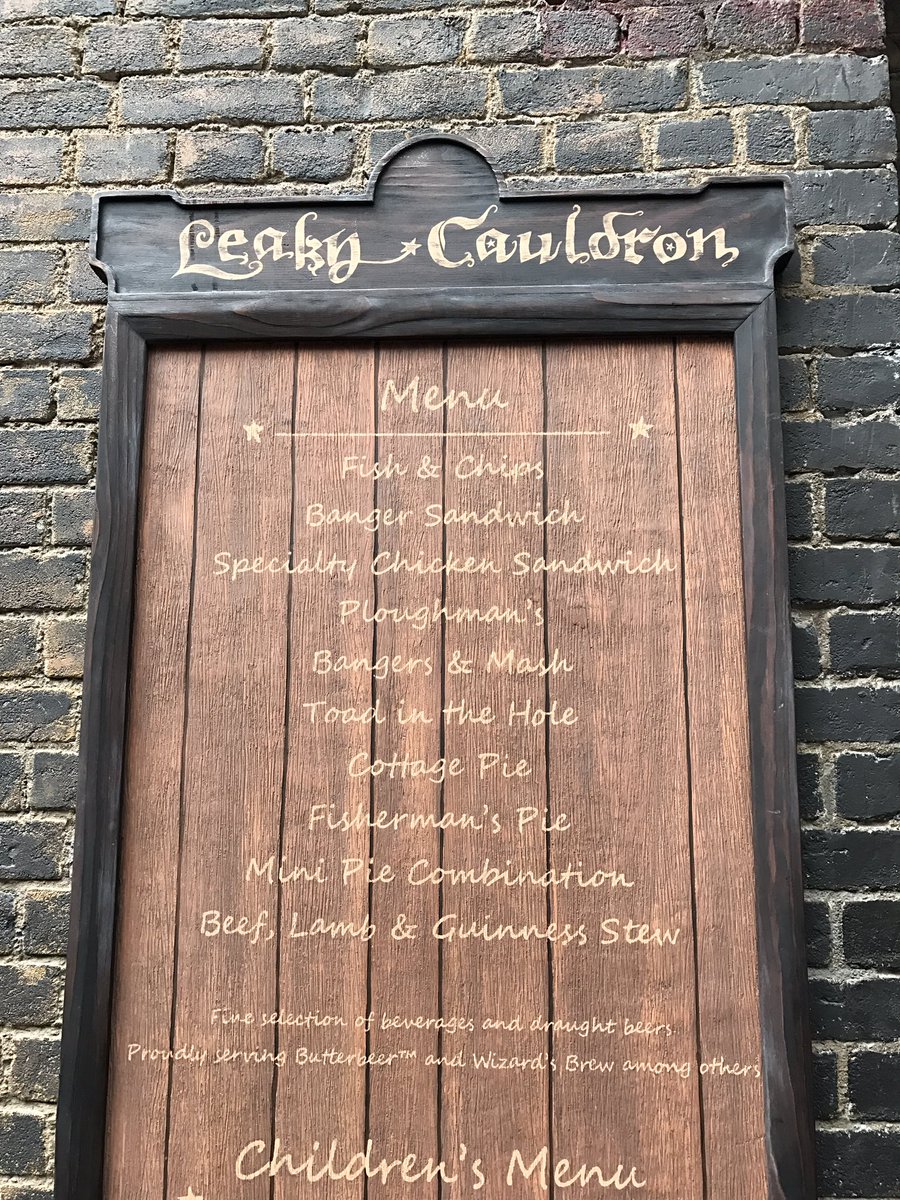 Leaky Cauldron
Menu
Fish & Chips
Banger Sandwich
Specialty Chicken Sandwich
Ploughman's
Bangers & Mash
Toad in the Hole
Cottage Pie
Fisherman's Pie
Mini Pie Combination
Beef, Lamb & Guinness Stew
Fine selection of beverages and draught beers.
Proudly serving Butterbeer™ and Wizard's Brew among others
Children's Menu